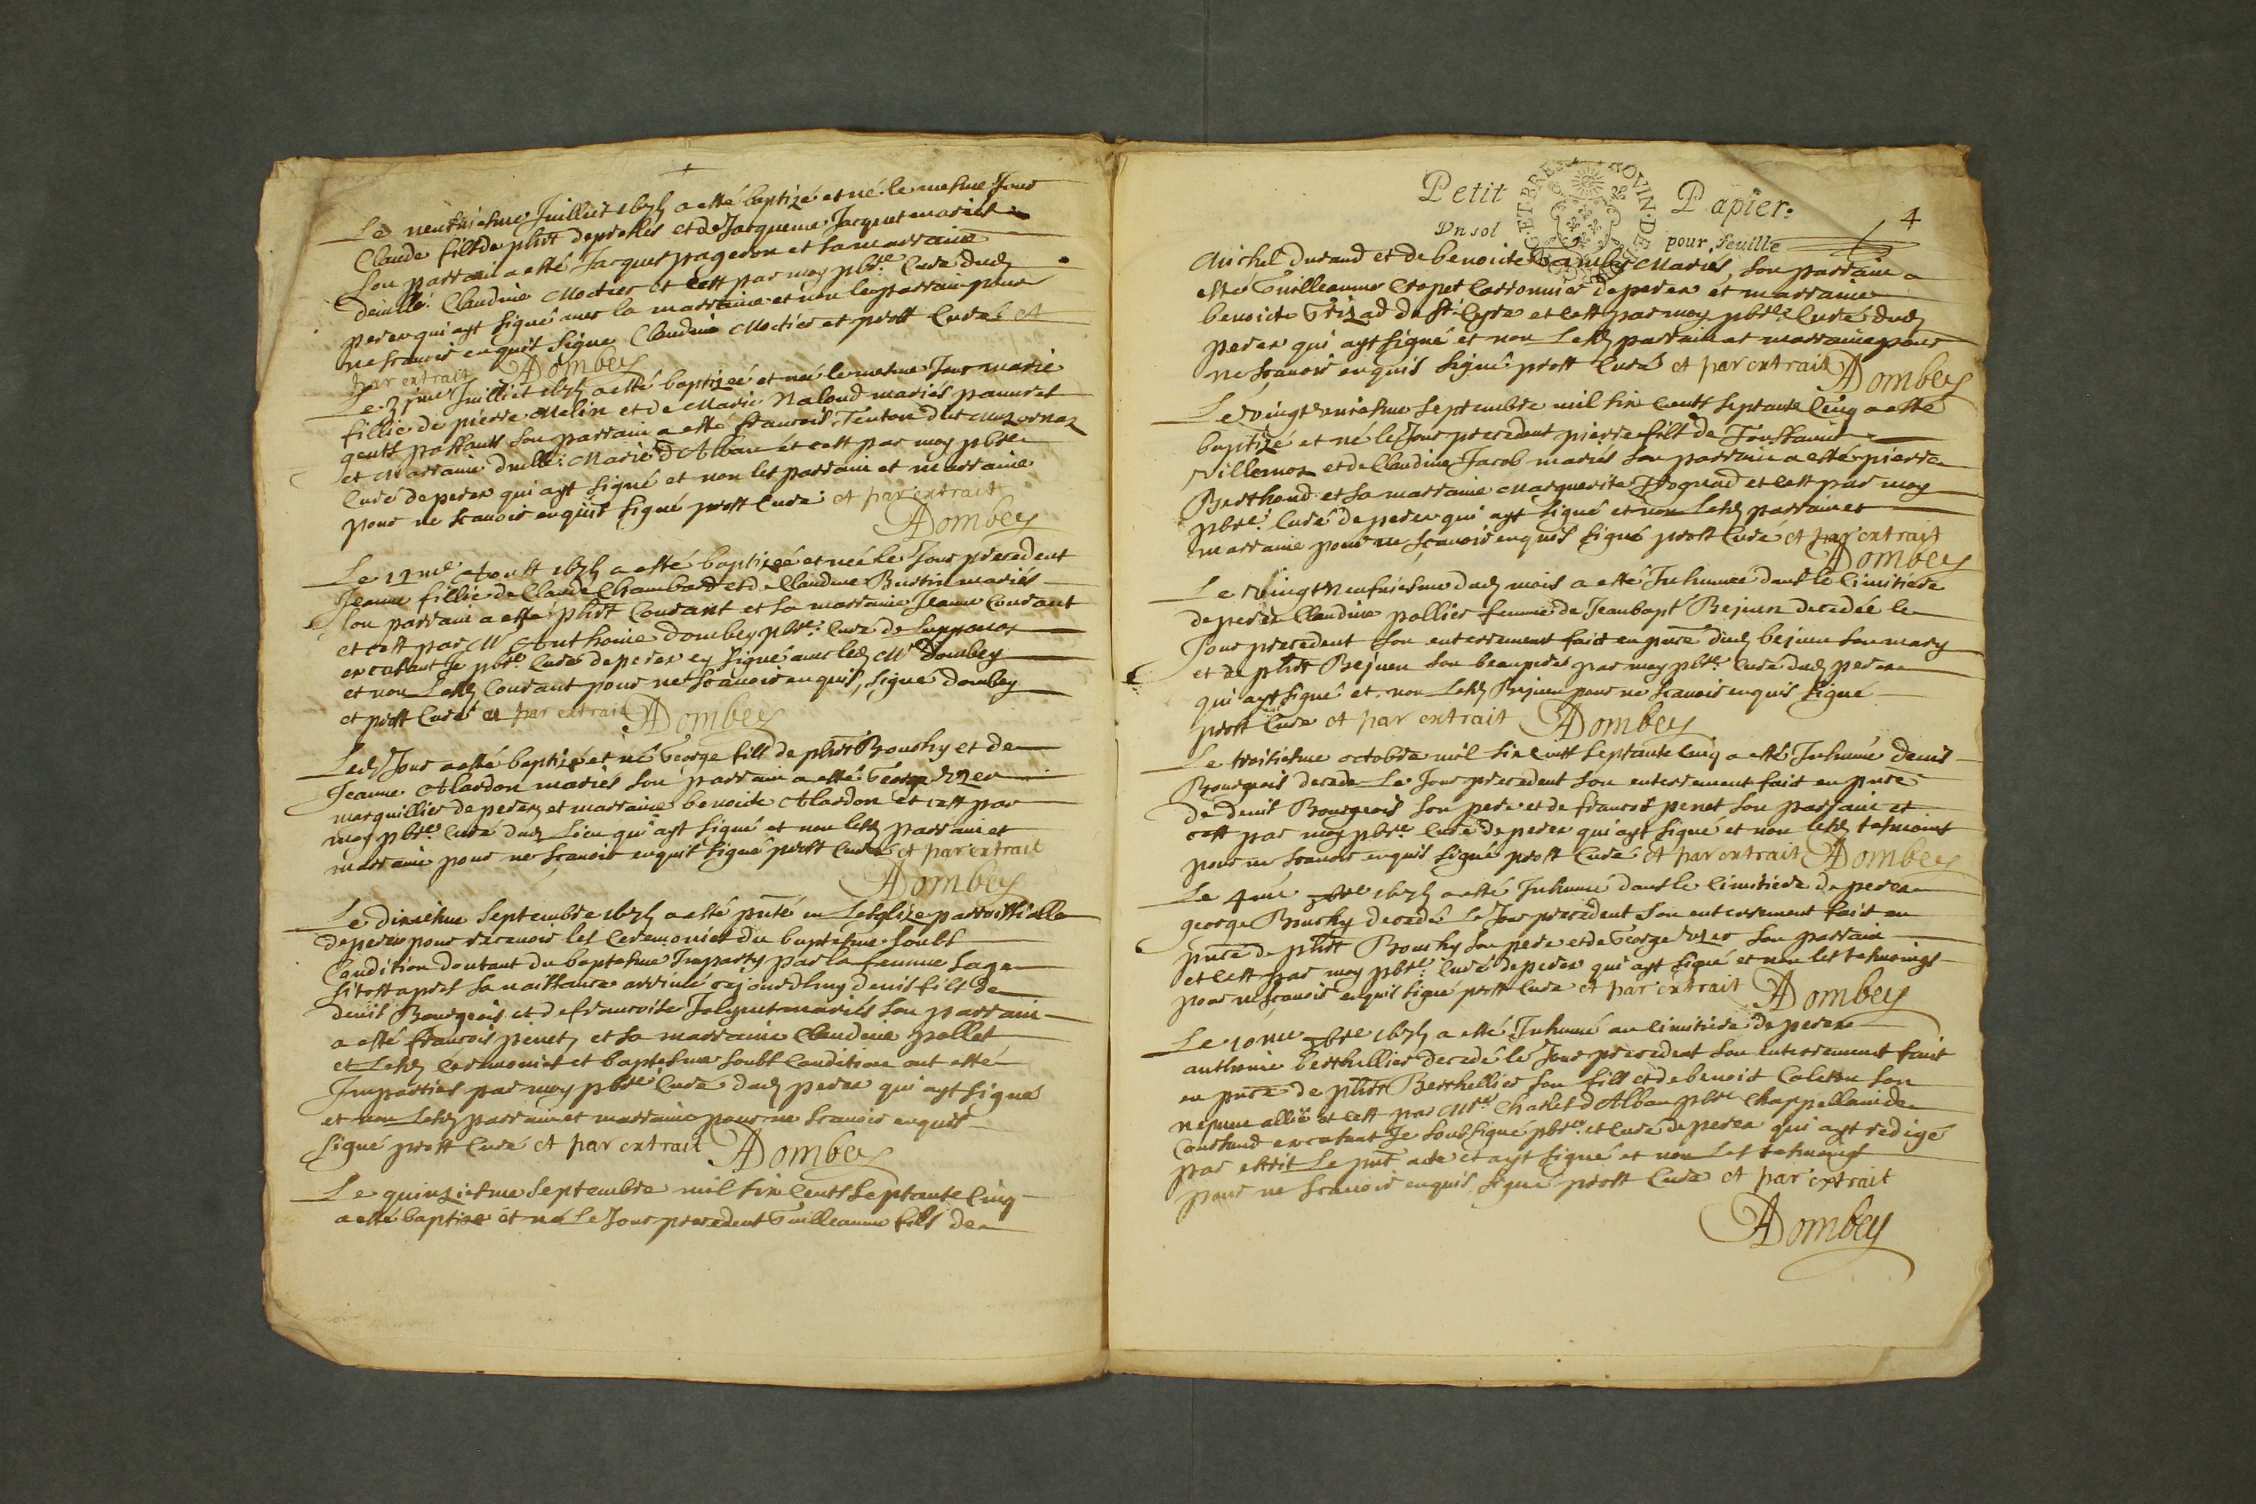 Le neufviesme Juilliet 1675 a esté baptizé et né le mesme Jour
Claude fils de phrt deprolis et de Jacqueme Jacquet mariés
son parrain a esté Jacques pageron et sa marraine
denille Claudine Moctier et cest par moy pbre Curé dud
perex qui ayt signé avec la marraine et non le parrain pour
ne scavoir enquis signe Claudine Moctier et prost Curé et
par extrait ADombey
Le Juilliet 1675 a esté baptizeé et neé le mesme Jour marie
fillie de pierre Melin et de Marie Naloud mariés pauvres
gents passants son parrain a esté francois Tenton dict
et Marraine dnelle Marie D Alban et cest par moy pbre
Curé de perex qui ayt signé et non les parrain et marraine
pour ne scavoir enquis signé prost Curé et par extrait
ADombey
Le 12me Aoust 1675 a esté baptizeé et neé le Jour precedent
Jeanne fillie de Claude Chambard et de Claudine Burtin mariés
son parrain a esté phrt Courant et sa marraine Jeanne Courant
et cest par Mr Anthoine Dombey pbre Curé de Lupponas
en casant Je pbre Curé de perex ey signé avec led Mr Dombey
et non Lesd Courant pour ne scavoir enquis, signe Dombey
et prost Curé et par extrait ADombey
Led Jour a esté baptizé et né George fils de phrt Bouchy et de
Jeanne Alardon mariés son parrain a esté George
marguillier de perex et marraine benoite Alardon et cest par
moy pbre Curé dud Lieu qui ayt signé et non lesd parrain et
marraine pour ne scavoir enquis signé prost Curé et par extrait
ADombey
Le dixiesme Septembre 1675 a esté pnté en Lesglize parroissialle
de perex pour recevoir les Ceremonies du baptesme soubs
Condition doutant du baptesme Imparty par la femme sage
sitost apres sa naissance arrivée cejourdhuy denis fils de
denis Bourgeois et de francoise Jolyent mariés son parrain
a esté francois penet et sa marraine Claudine pollet
et Lesd Ceremonies et baptesme soubs Condition ont esté
Imparties par moy pbre Curé dud perex qui ayt signé
et non Lesd parrain et marraine pour ne scavoir enquis
signé prost Curé et par extrait ADombey
Le quinziesme Septembre mil six Cents Septante Cinq
a esté baptizé et né Le Jour precedent Guilleaume fils de
Petit Papier.
Vn sol pour, feuille
4
Michel Durand et de benoite Mariés, son parrain a
esté Guilleaume Crapet de perex et marraine
benoite Grizad de St Cyre et cest par moy pbre Curé dud
perex qui ayt signé et non Lesd parrain et marraine pour
ne scavoir enquis signé prost Curé et par extrait ADombey
Le vingtuniesme Septembre mil six Cents Septante Cinq a esté
baptizé et né le Jour precedent pierre fils de Toussaint
Villemot et de Claudine Jacob mariés son parrain a esté pierre
Berthoud et sa marraine Marguerite et cest par moy
pbre Curé de perex qui ayt signé et non Lesd parrain et
marraine pour ne scavoir enquis signé prost Curé et par extrait
ADombey
Le vingt neufviesme dud mois a esté Inhumeé dans le Cimitiere
de perex Claudine pollier femme de Jean bapt Bejuen decedée le
Jour precedent son enterrement faict en pnce dud bejuen son mary
et de phrt Bejuen son beau pere par moy pbre Curé dud perex
qui ayt signé et non Lesd Bejuen pour ne scavoir enquis signé
prost Curé et par extrait ADombey
Le troisiesme octobre mil six Cents Septante Cinq a esté Inhumé denis
Bourgeois decede Le Jour precedent son enterrement faict en pnce
de denis Bourgeois son pere et de francois penet son parrain et
cest par moy pbre Curé de perex qui ayt signé et non lesd tesmoins
pour ne scavoir enquis signé prost Curé et par extrait ADombey
Le 4me 1675 a esté Inhumé dans le Cimitiere de perex
george Bouchy decedé Le Jour precedent son enterrement faict en
pnce de phrt Bouchy son pere et de George son parrain
et cest par moy pbre Curé de perex qui ayt signé et non les tesmoings
pour ne scavoir enquis signé prost Curé et par extrait ADombey
Le 10me 1675 a esté Inhumé au Cimitiere de perex
anthoine berthellier decedé le Jour precedent son enterrement faict
en pnce de phrt Berthellier son fils et de benoit Coleton son
nepveu allié et cest par Mre Charles D Alban pbre Chappellain de
Confrand en casant Je soubsigné pbre et Curé de perex qui ayt redigé
par escrit Le pnt acte et ayt signé et non Les tesmoings
pour ne scavoir enquis, signé prost Curé et par extrait
ADombey